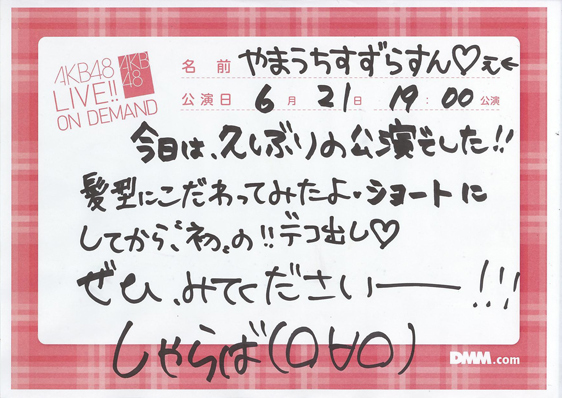 AKB48
LIVE!!
ON DEMAND
AKB
48
名前 やまうちすずらすん♡え←
公演日 6月21日 19:00公演
今日は、久しぶりの公演でした!!
髪型にこだわってみたよ・ショートに
してから、"初"の!!デコ出し♡
ぜひ、みてくださいーーー!!!
しゃらば(O∀O)
DMM.com